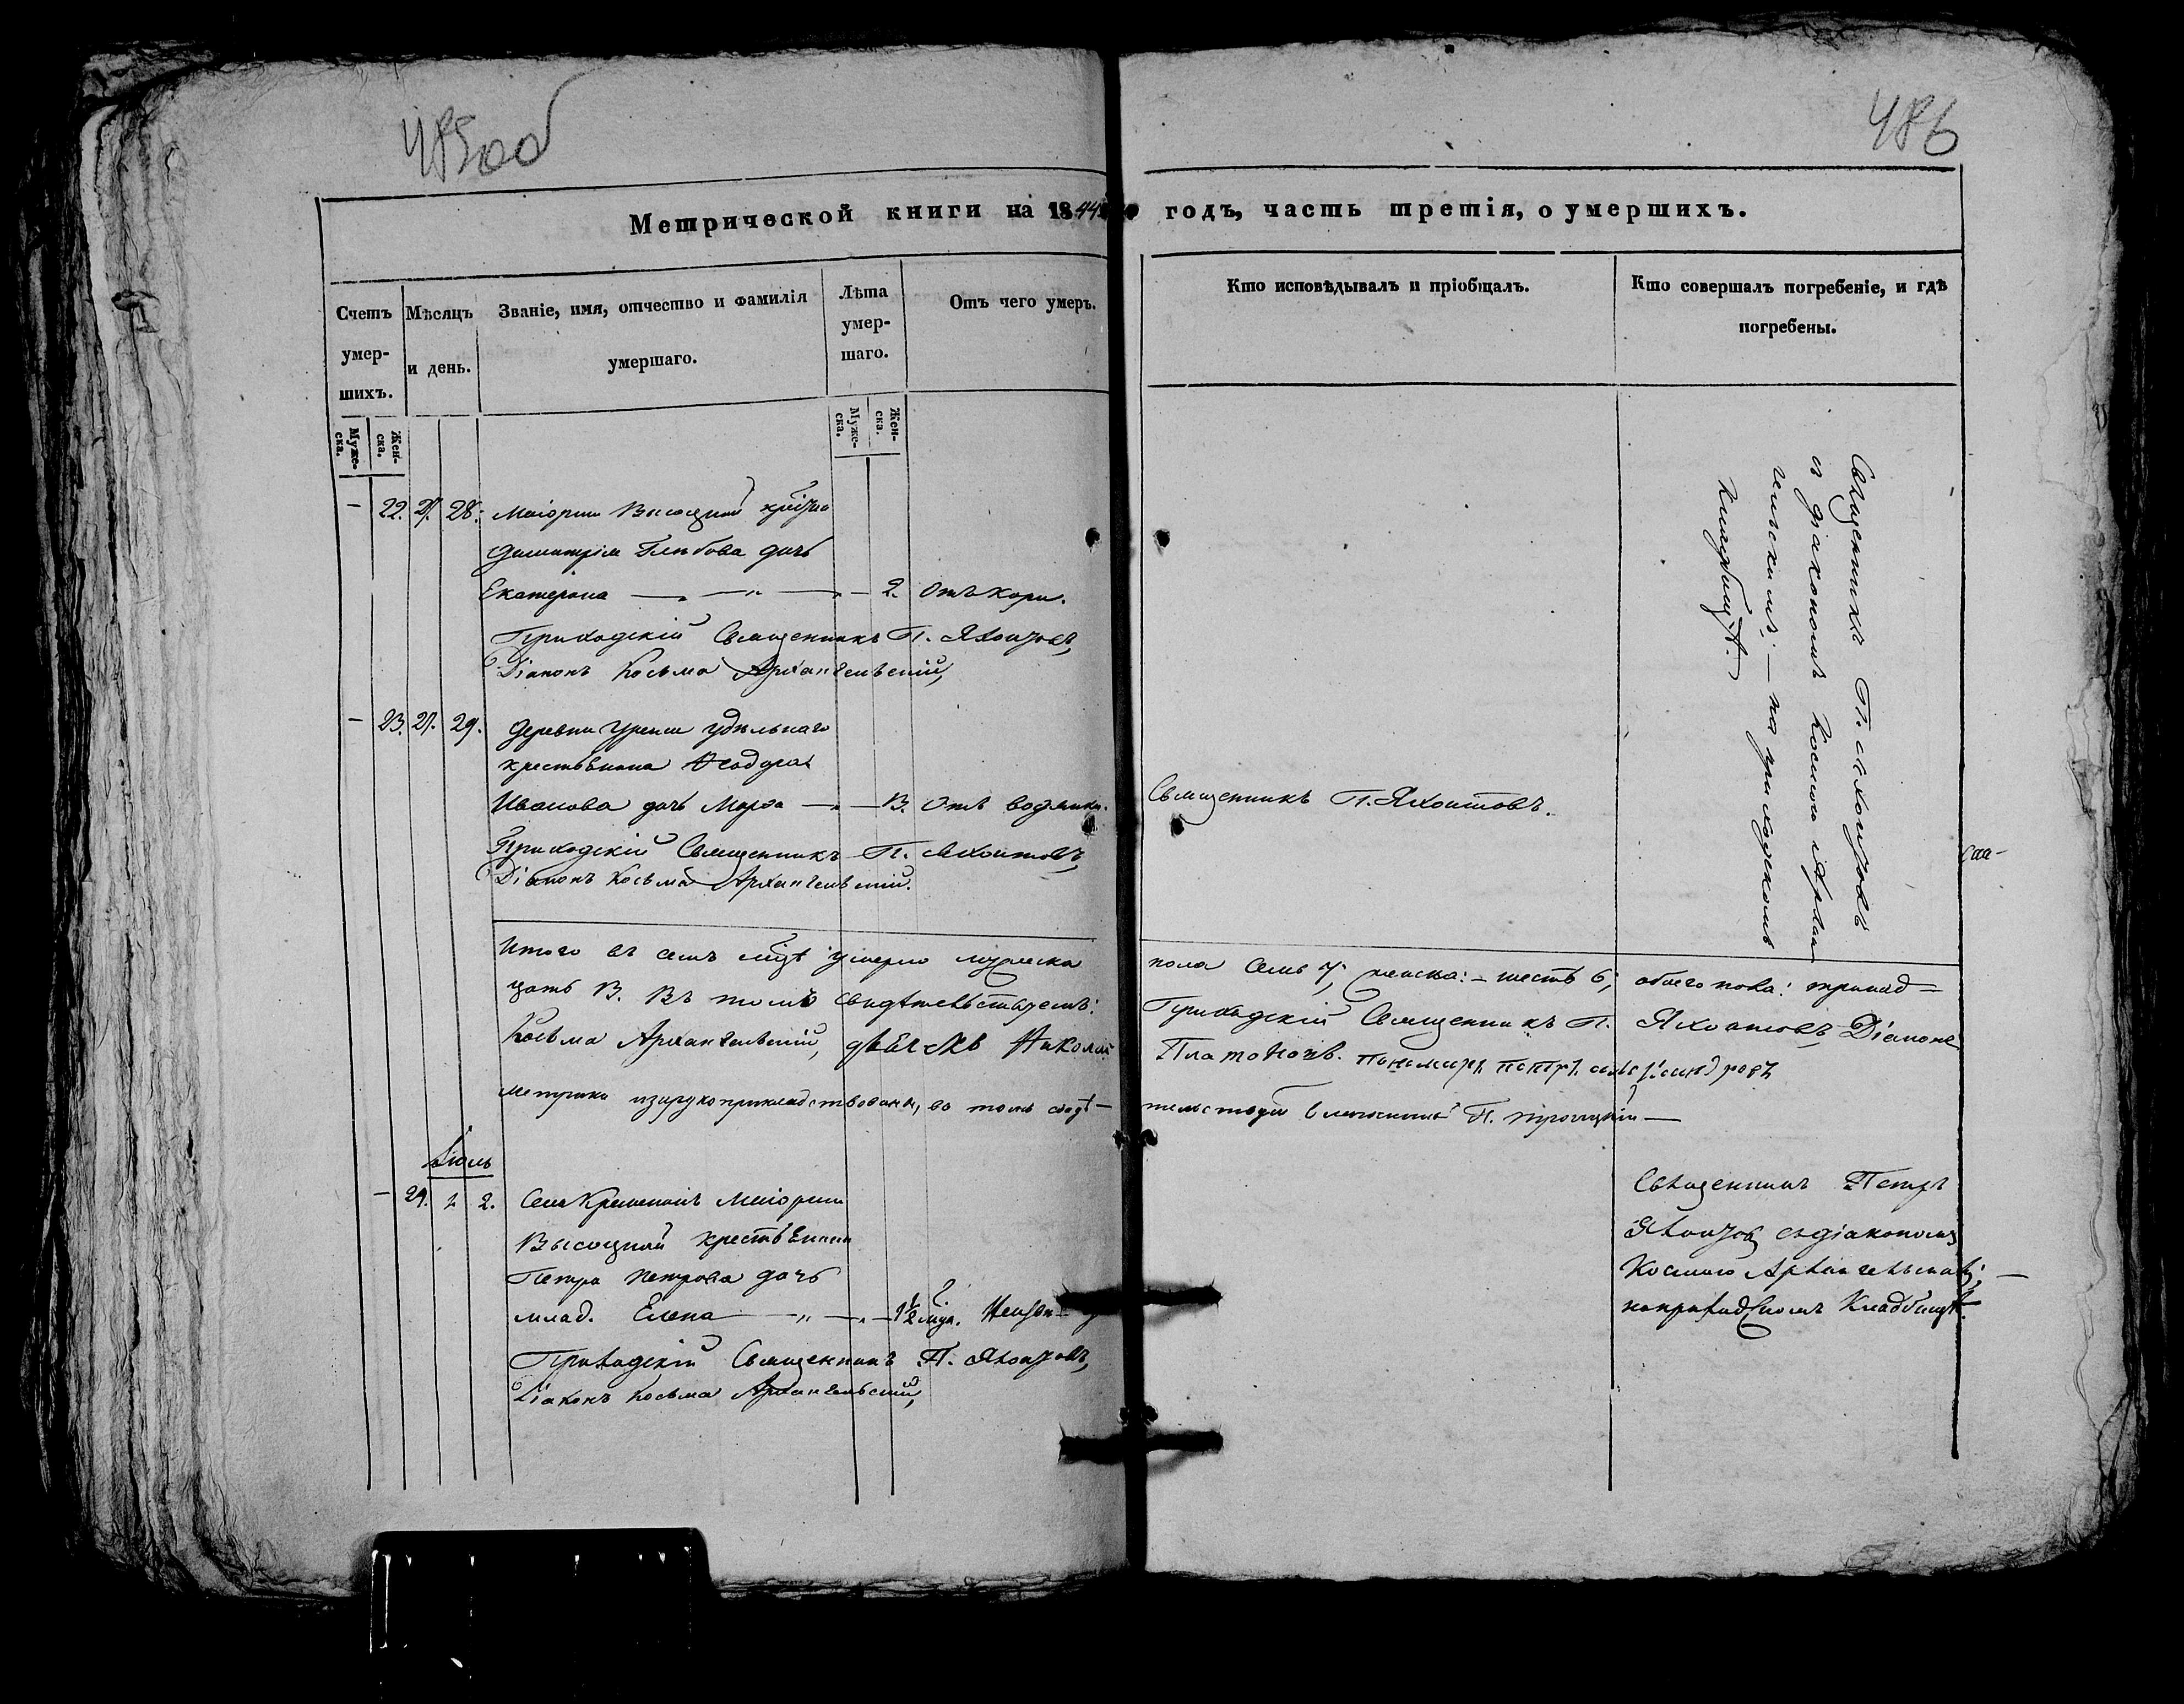 485об
486
Метрической книги на 1844 годъ, часть третія, о умершихъ.
Счетъ умер-шихъ.
Мѣсяцъ и день.
Званіе, имя, отчество и фамилія умершаго.
Лѣта умер-шаго.
Отъ чего умеръ.
Кто исповѣдывалъ и пріобщалъ.
Кто совершалъ погребеніе, и гдѣ погребены.
Муже-ска.
Жен-ска.
Муже-ска.
Жен-ска.
– 22. 27. 28. Маіорши Высоцкой
Димитрія Глебова дочь
Екатерина — „ — „ — 2. Отъ кори.
Приходскій Священникъ П. Яхонтовъ,
Діаконъ Косьма Архангельскій,
Священникъ П. Яхонтовъ
съ діакономъ Космою Архан-
гельскимъ; — на приходскомъ
Кладбищѣ. —
– 23. 27. 29. Деревни удѣльнаго
крестьянина Ѳеодора
Иванова дочь — „ — 13. Отъ водянки.
Священникъ П. Яхонтовъ.
Приходскій Священникъ П. Яхонтовъ,
Діаконъ Косьма Архангельскій.
Итого въ семъ мцѣ умерло мужеска пола семь 7, женска: – шесть 6, обоего пола: тринад-
цать 13. Въ томъ свидѣтельствуемъ: Приходскій Священникъ П. Яхонтовъ Діаконъ
Косьма Архангельскій, дьячекъ Николай Платоновъ. пономарь петръ
Метрика изарукоприкладствована, въ томъ свидѣ-тельствуетъ Благочинный П. Троицкій —
Іюль
– 24. 1 2. Села маіорши
Высоцкой крестьянина
Петра Петрова дочь
млад. Елена — „ — „ — 1½ мца.
Священникъ Петръ
Яхонтовъ съ діакономъ
Космою Архангельскимъ; —
на приходскомъ Кладбищѣ.
Приходскій Священникъ П. Яхонтовъ,
Діаконъ Косьма Архангельскій,